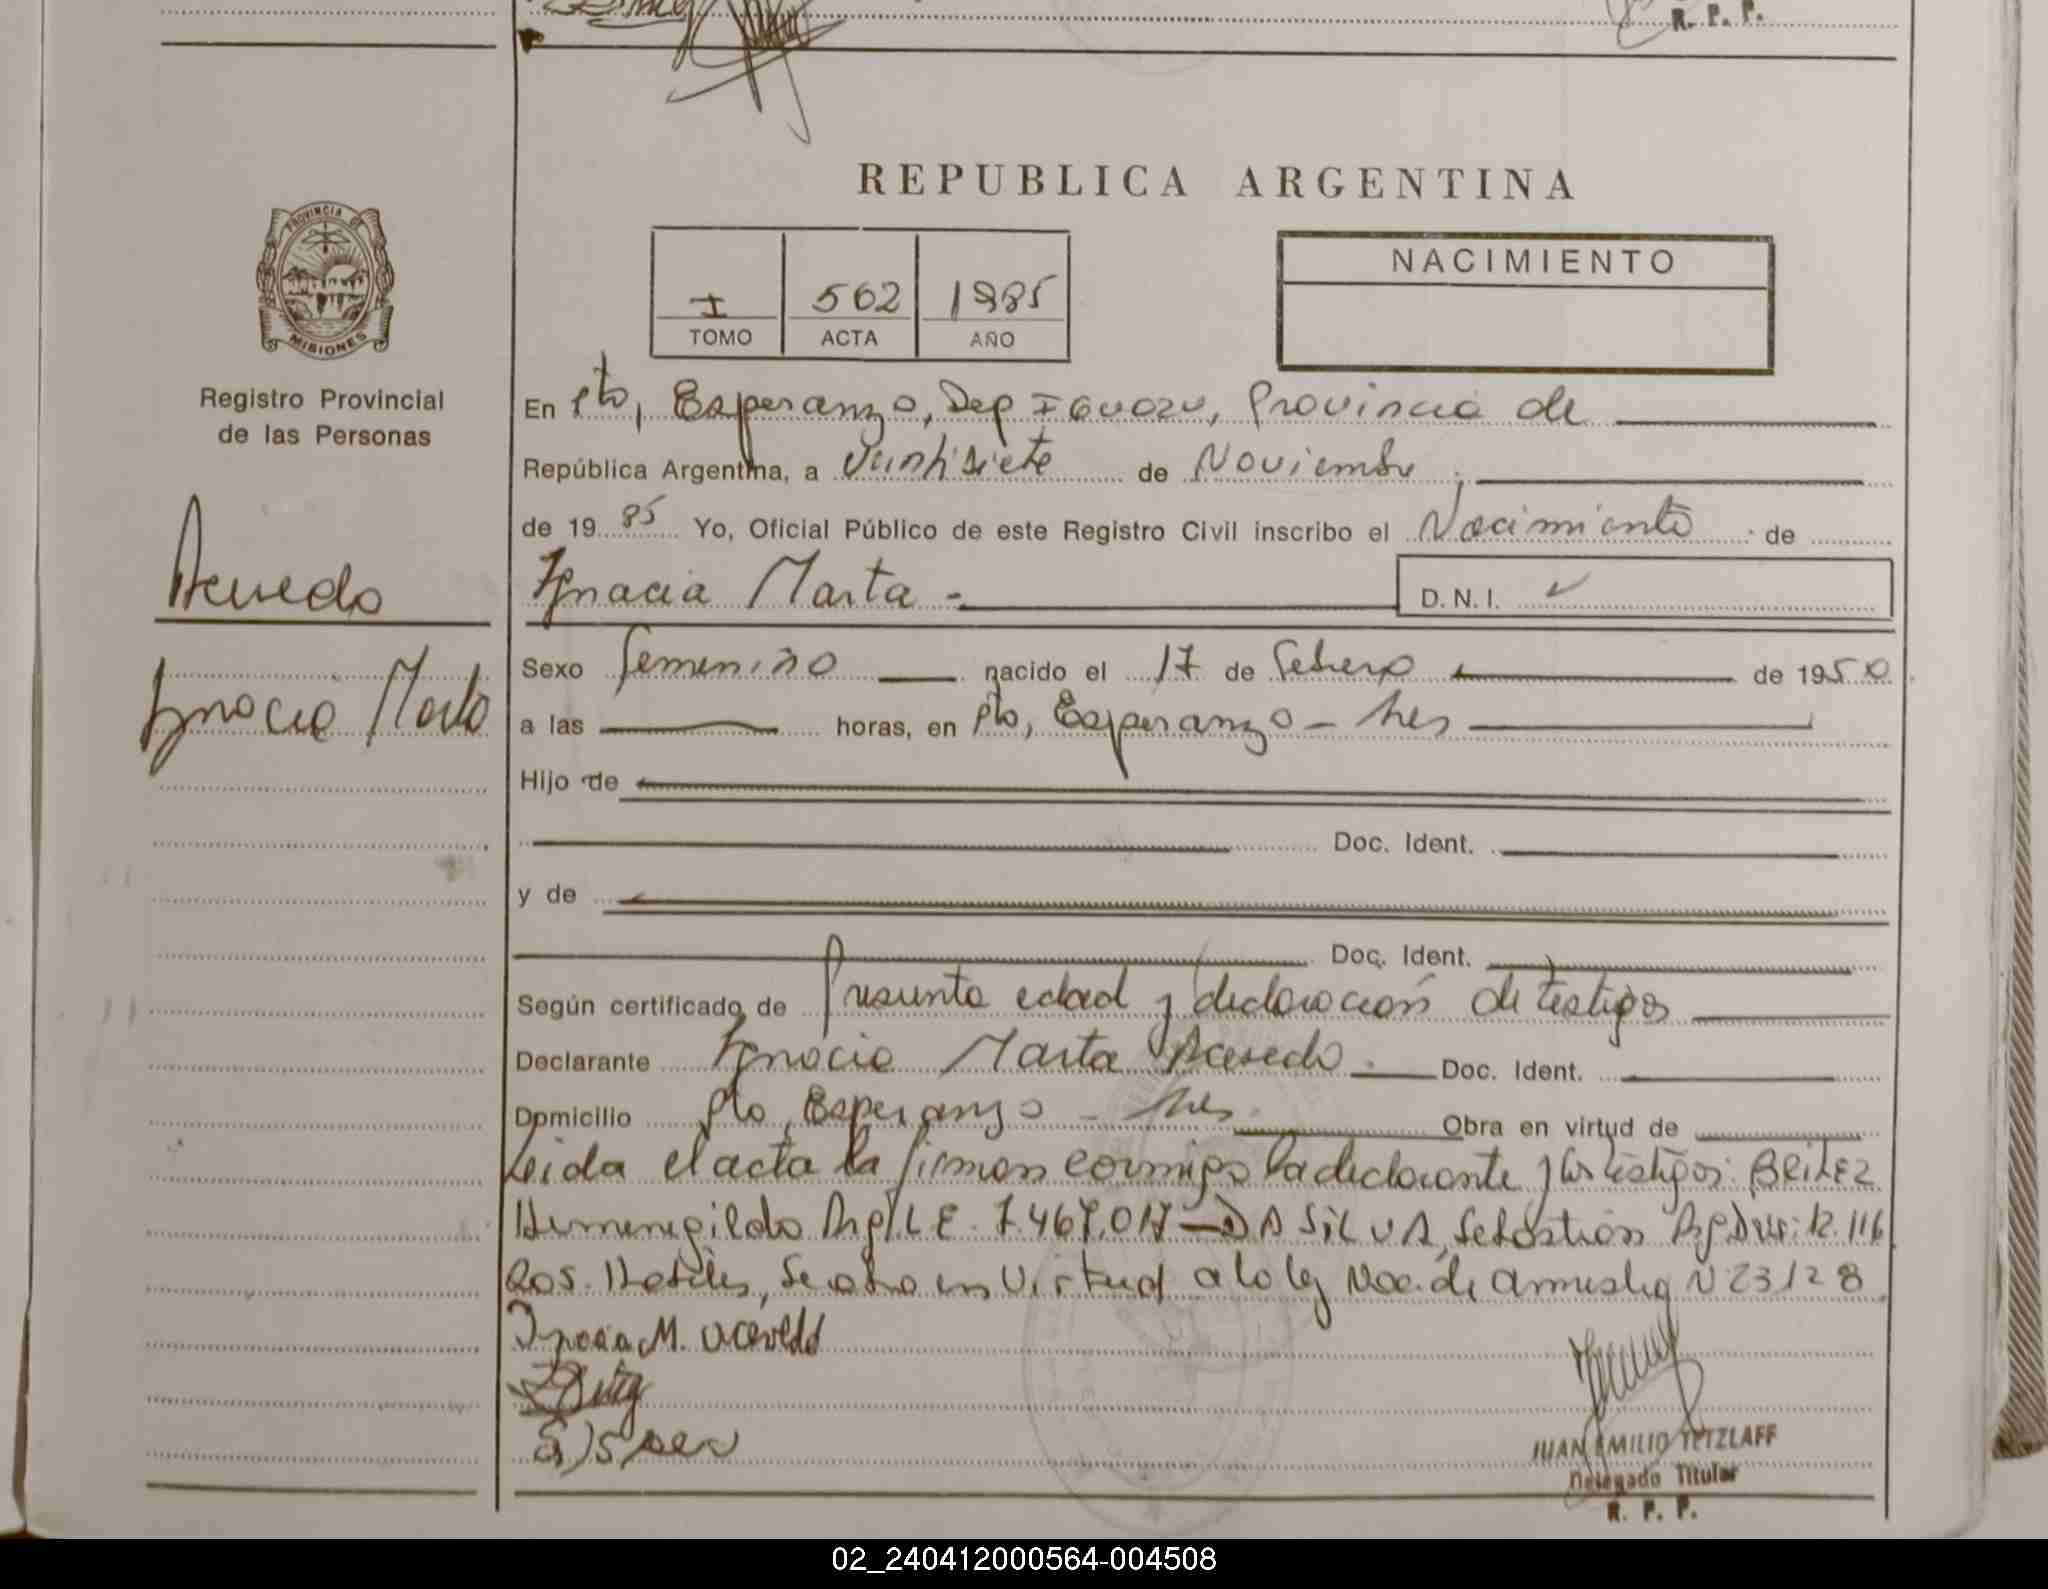 R. P. P.
REPUBLICA ARGENTINA
PROVINCIA DE
MISIONES
Registro Provincial
de las Personas
Acevedo
Ignacia Marta
I 562 1985
TOMO ACTA AÑO
NACIMIENTO
En Pto, Esperanza, Dep Iguazu, Provincia de
República Argentina, a Veintisiete de Noviembre
de 19 85 Yo, Oficial Público de este Registro Civil inscribo el Nacimiento de
Ignacia Marta - D. N. I.
Sexo femenino nacido el 17 de febrero de 1950
a las horas, en Pto, Esperanza - Mnes
Hijo de
Doc. Ident.
y de
Doc. Ident.
Según certificado de Presunta edad y declaración de testigos
Declarante Ignacia Marta Acevedo. Doc. Ident.
Domicilio Pto, Esperanza - Mnes. Obra en virtud de
Leida el acta la firman conmigo la declarante y los testigos: BEITEZ
Hermenegildo Arg/L E. 7.467.017 - DA SILVA, Sebastian Arg 12.116
Se obra en Virtud a la ley Nac. de amnistia N 23128
Ignacia M. acevedo
JUAN EMILIO TETZLAFF
Delegado Titular
R. P. P.
02_240412000564-004508